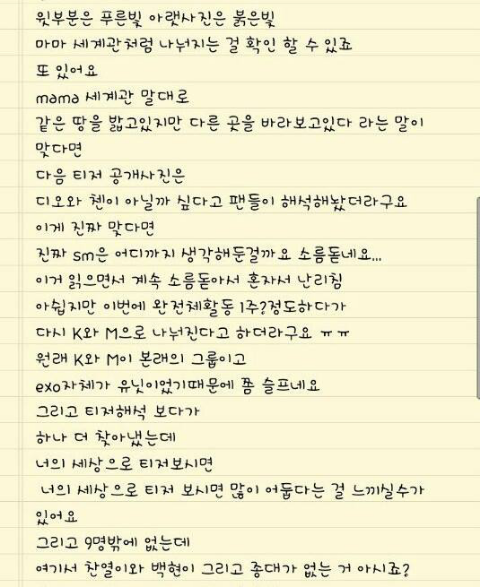 윗부분은 푸른빛 아랫사진은 붉은빛
마마 세계관처럼 나뉘지는 걸 확인 할 수 있죠
또 있어요
mama 세계관 말대로
같은 땅을 밟고있지만 다른 곳을 바라보고있다 라는 말이
맞다면
다음 티저 공개사진은
디오와 첸이 아닐까 싶다고 팬들이 해석해놨더라구요
이게 진짜 맞다면
진짜 sm은 어디까지 생각해둔걸까요 소름돋네요...
이거 읽으면서 계속 소름돋아서 혼자서 난리침
아쉽지만 이번에 완전체활동 1주?정도하다가
다시 K와 M으로 나눠진다고 하더라구요 ㅠㅠ
원래 K와 M이 본래의 그룹이고
exo자체가 유닛이었기때문에 쫌 슬프네요
그리고 티저해석 보다가
하나 더 찾아냈는데
너의 세상으로 티저보시면
너의 세상으로 티저 보시면 많이 어둡다는 걸 느끼실수가
있어요
그리고 9명밖에 없는데
여기서 찬열이와 백현이 그리고 종대가 없는 거 아시죠?